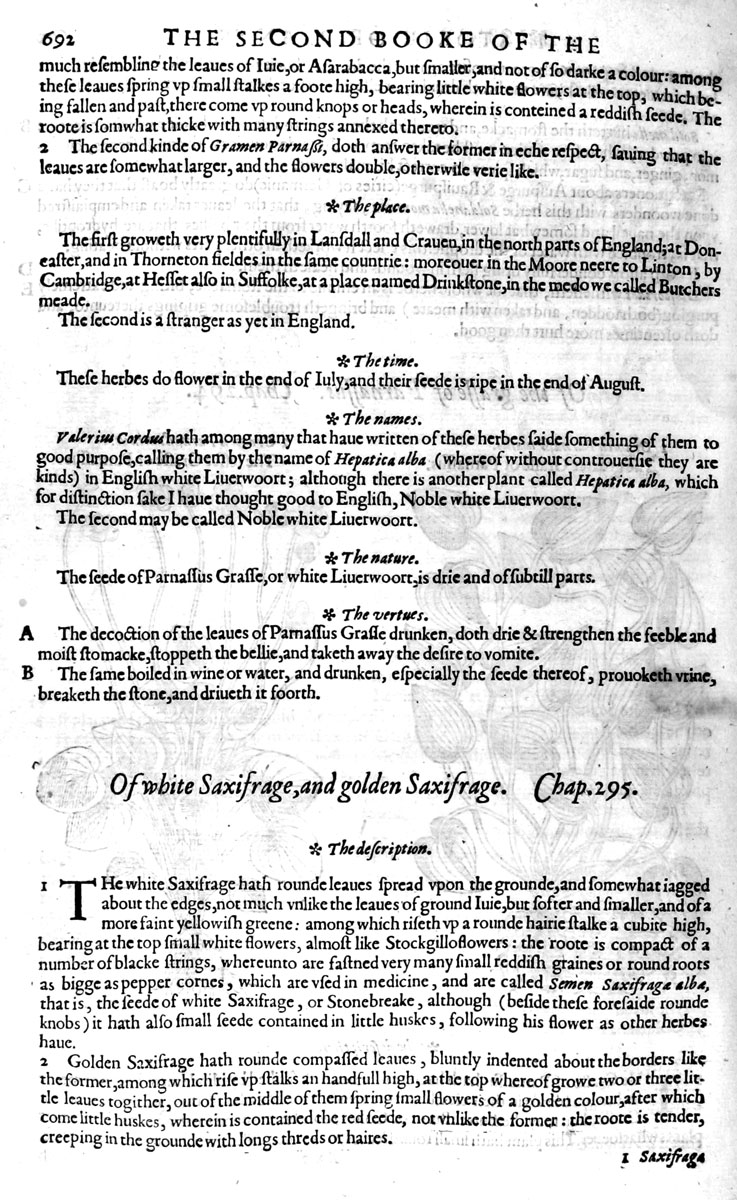 692 THE SECOND BOOKE OF THE
much reſembling the leaues of Iuie, or Aſarabacca, but ſmaller, and not of ſo darke a colour: among
theſe leaues ſpring vp ſmall ſtalkes a foote high, bearing little white flowers at the top, which be-
ing fallen and paſt, there come vp round knops or heads, wherein is conteined a reddiſh ſeede. The
roote is ſomwhat thicke with many ſtrings annexed thereto.
2 The ſecond kinde of Gramen Parnaſſi, doth anſwer the former in eche reſpect, ſauing that the
leaues are ſomewhat larger, and the flowers double, otherwiſe verie like.
✻ The place.
The firſt groweth very plentifully in Lanſdall and Crauen, in the north parts of England; at Don-
eaſter, and in Thorneton fieldes in the ſame countrie: moreouer in the Moore neere to Linton, by
Cambridge, at Heſſet alſo in Suffolke, at a place named Drinkſtone, in the medowe called Butchers
meade.
The ſecond is a ſtranger as yet in England.
✻ The time.
Theſe herbes do flower in the end of Iuly, and their ſeede is ripe in the end of Auguſt.
✻ The names.
Valerius Cordus hath among many that haue written of theſe herbes ſaide ſomething of them to
good purpoſe, calling them by the name of Hepatica alba (whereof without controuerſie they are
kinds) in Engliſh white Liuerwoort; although there is another plant called Hepatica alba, which
for diſtinction ſake I haue thought good to Engliſh, Noble white Liuerwoort.
The ſecond may be called Noble white Liuerwoort.
✻ The nature.
The ſeede of Parnaſſus Graſſe, or white Liuerwoort, is drie and of ſubtill parts.
✻ The vertues.
A The decoction of the leaues of Parnaſſus Graſſe drunken, doth drie & ſtrengthen the feeble and
moiſt ſtomacke, ſtoppeth the bellie, and taketh away the deſire to vomite.
B The ſame boiled in wine or water, and drunken, eſpecially the ſeede thereof, prouoketh vrine,
breaketh the ſtone, and driueth it foorth.
Of white Saxifrage, and golden Saxifrage. Chap. 295.
✻ The deſcription.
1 THe white Saxifrage hath rounde leaues ſpread vpon the grounde, and ſomewhat iagged
about the edges, not much vnlike the leaues of ground Iuie, but ſofter and ſmaller, and of a
more faint yellowiſh greene: among which riſeth vp a rounde hairie ſtalke a cubite high,
bearing at the top ſmall white flowers, almoſt like Stockgilloflowers: the roote is compact of a
number of blacke ſtrings, whereunto are faſtned very many ſmall reddiſh graines or round roots
as bigge as pepper cornes, which are vſed in medicine, and are called Semen Saxifragæ albæ,
that is, the ſeede of white Saxifrage, or Stonebreake, although (beſide theſe foreſaide rounde
knobs) it hath alſo ſmall ſeede contained in little huskes, following his flower as other herbes
haue.
2 Golden Saxifrage hath rounde compaſſed leaues, bluntly indented about the borders like
the former, among which riſe vp ſtalks an handfull high, at the top whereof growe two or three lit-
tle leaues togither, out of the middle of them ſpring ſmall flowers of a golden colour, after which
come little huskes, wherein is contained the red ſeede, not vnlike the former: the roote is tender,
creeping in the grounde with longs threds or haires.
1 Saxifraga